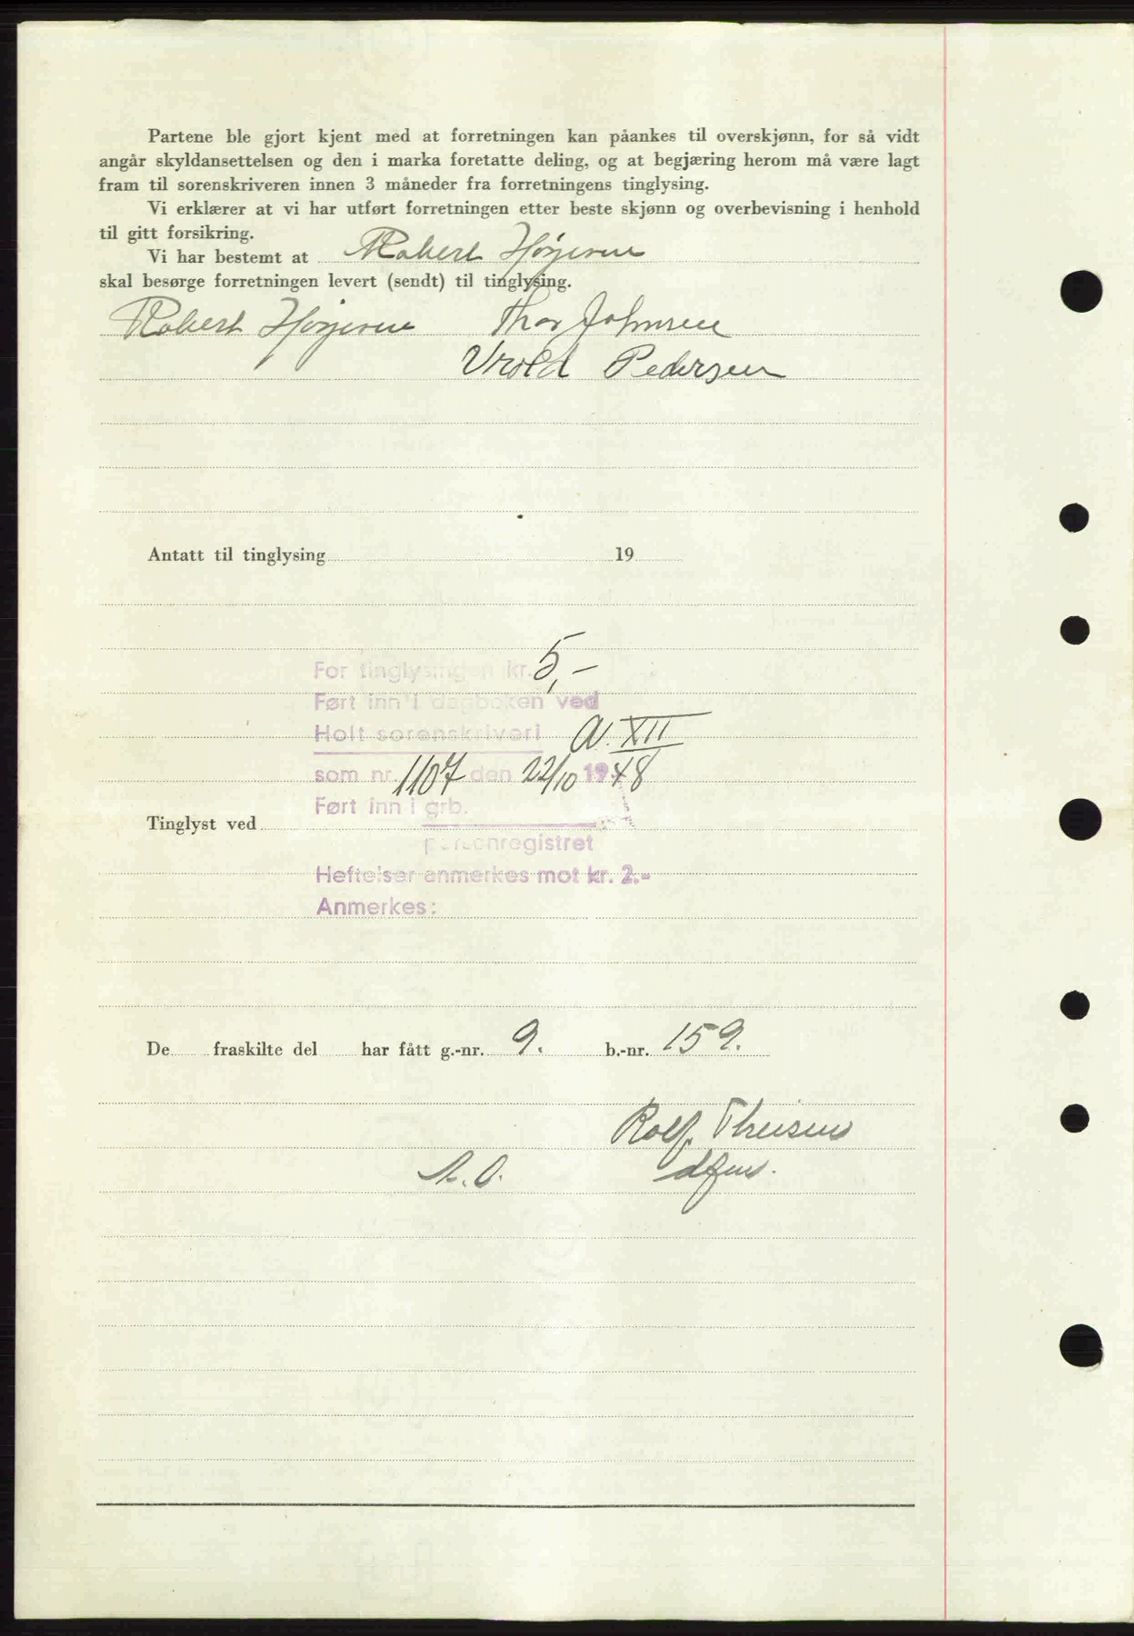 Partene ble gjort kjent med at forretningen kan påankes til overskjønn, for så vidt
angår skyldansettelsen og den i marka foretatte deling, og at begjæring herom må være lagt
fram til sorenskriveren innen 3 måneder fra forretningens tinglysing.
Vi erklærer at vi har utført forretningen etter beste skjønn og overbevisning i henhold
til gitt forsikring.
Vi har bestemt at Robert
skal besørge forretningen levert (sendt) til tinglysing.
Robert Thor Johnsen
Vrold Pedersen
Antatt til tinglysing 19
For tinglysingen kr. 5,-
Ført inn i dagboken ved
Holt sorenskriveri A. XII
som nr. 1107 den 22/10 1948
Ført inn i grb.
Tinglyst ved
personregistret
Heftelser anmerkes mot kr. 2.-
Anmerkes:
De fraskilte del har fått g.-nr. 9. b.-nr. 159.
Rolf